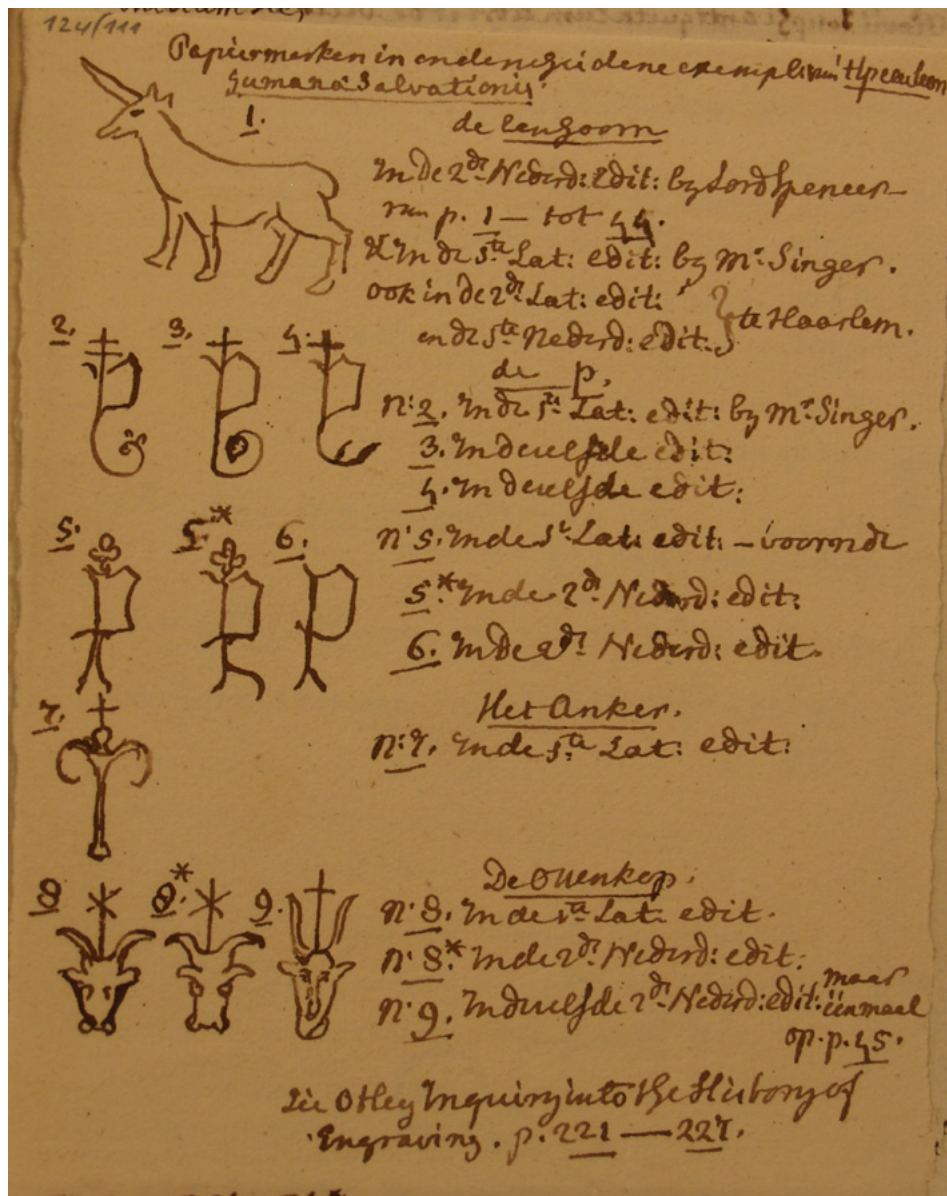 124/111
Papiermerken in onderscheidene exempl: van 't Speculum
humanae Salvationis.
1.
de Eenhoorn
In de 2de Nederd: Edit: by Lord Spencer
van p. 1 — tot 44.
In de 1ste Lat: edit: by Mr. Singer.
ook in de 2de Lat: edit:
te Haarlem.
en de 1ste Nederd: edit.
2. 3. 4.
de p.
N: 2. In de 1ste Lat: edit: by Mr. Singer.
3. In deselfde edit:
4. In deselfde edit:
5. 5* 6.
N: 5. In de 1ste Lat: edit: – voorende
5*. In de 2de Nederd: edit:
6. In de 2de Nederd: edit.
7.
Het Anker.
N: 7. In de 1ste Lat: edit:
8 8* 9.
De Ossenkop.
N: 8. In de 1ste Lat: edit.
N: 8.* In de 2de Nederd: edit:
N: 9. In deselfde 2de Nederd: edit: maar
éénmaal
op. p. 45.
Zie Otley Inquiry into the History of
Engraving. p. 221 — 227.